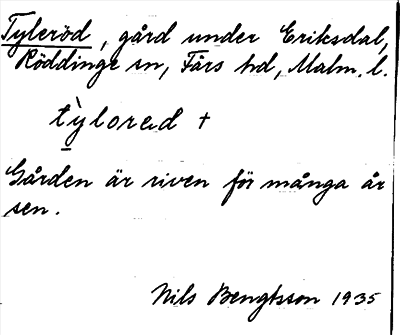 Tyleröd, gård under Eriksdal,
Röddinge sn, Färs hd, Malm. l.
tỳlorad +
Gården är riven för många år
sen.
Nils Bengtsson 1935